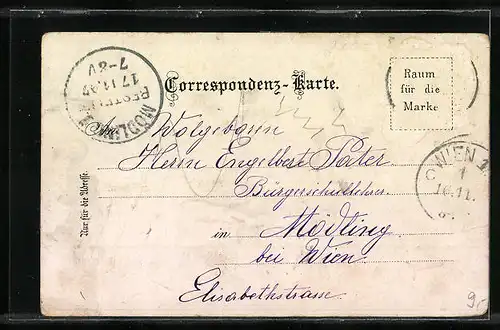 Correspondenz-Karte.
Raum
für die
Marke
MÖDLING
BESTELLT
17.11.97
7-8V
Nur für die Adresse.
An Wolgeborn
Herrn Engelbert Pater
Bürgerschullehrer
in Mödling
bei Wien.
Elisabethstrasse
WIEN 1
1
16.11.